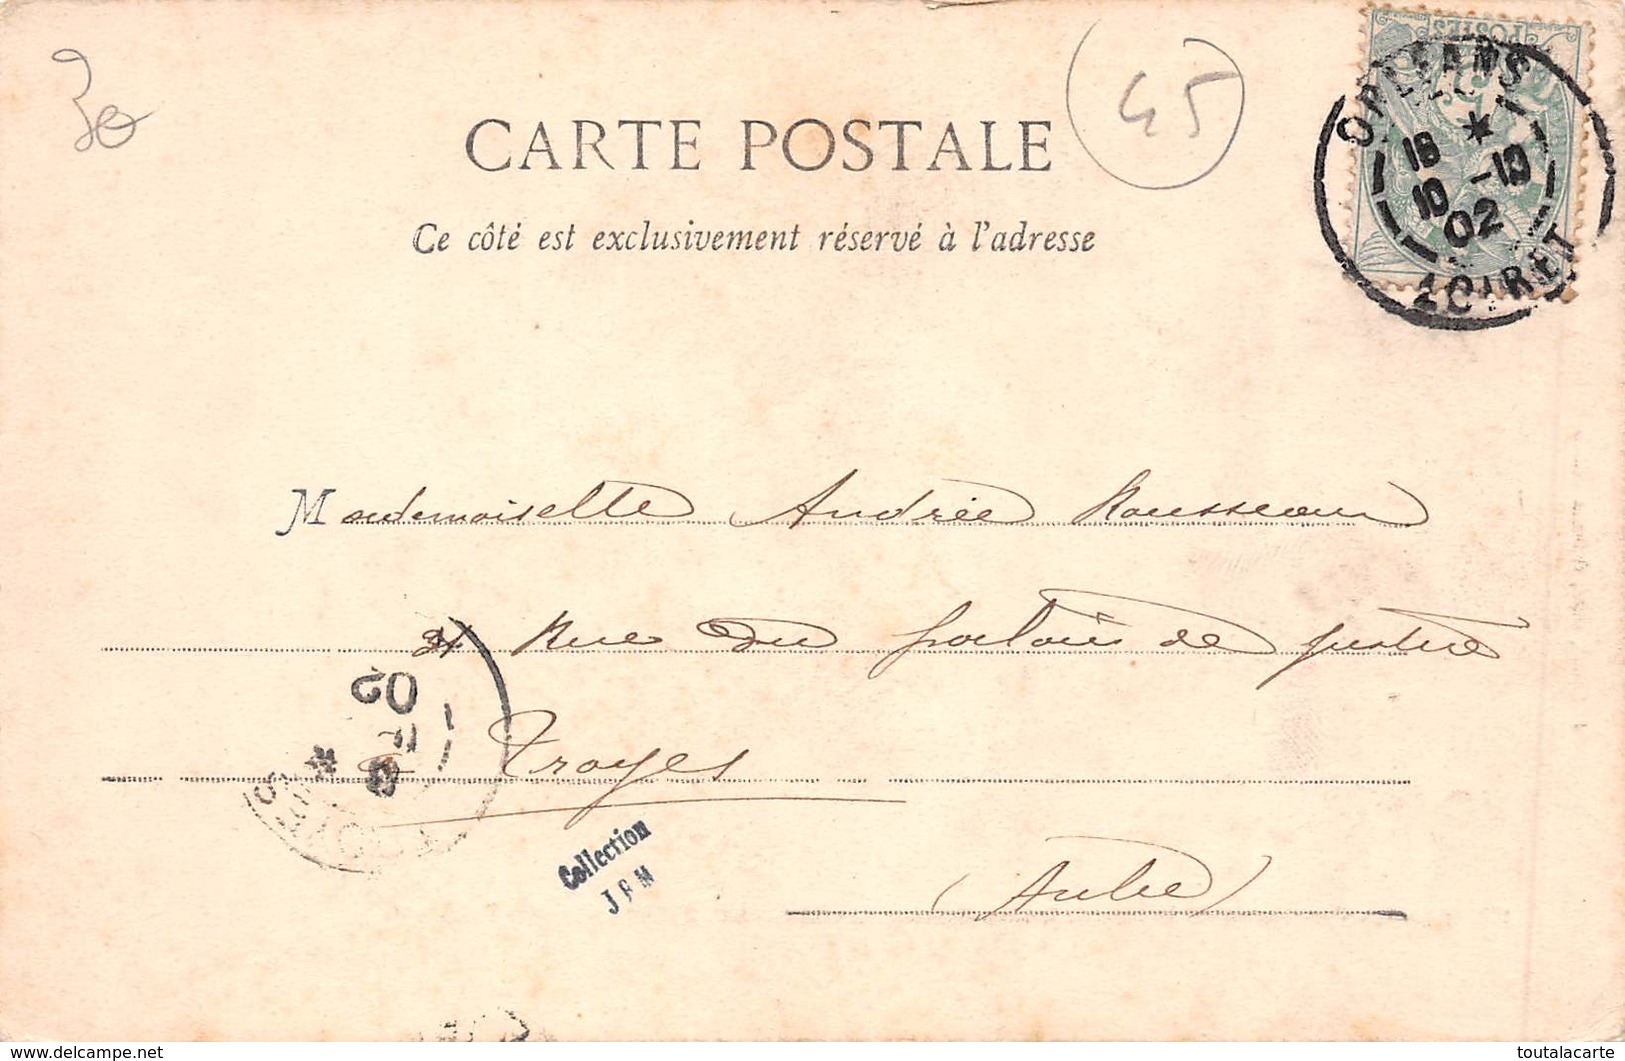 30
45
CARTE POSTALE
Ce côté est exclusivement réservé à l'adresse
POSTES
ORLEANS
18 ★
10 -10
02
LOIRET
Mademoiselle Andrée Rousseau
Rue du palais de justice
02
Troyes
TROYES
Collection
(Aube)
delcampe.net
toutalacarte